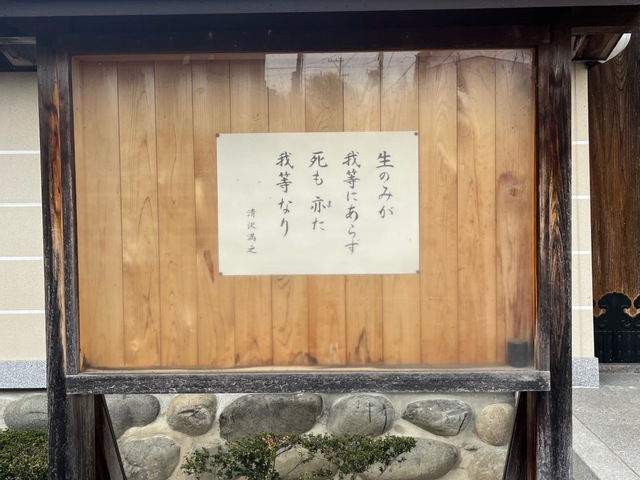 生のみが
我等にあらず
死も亦た
ま
我等なり
清沢満之